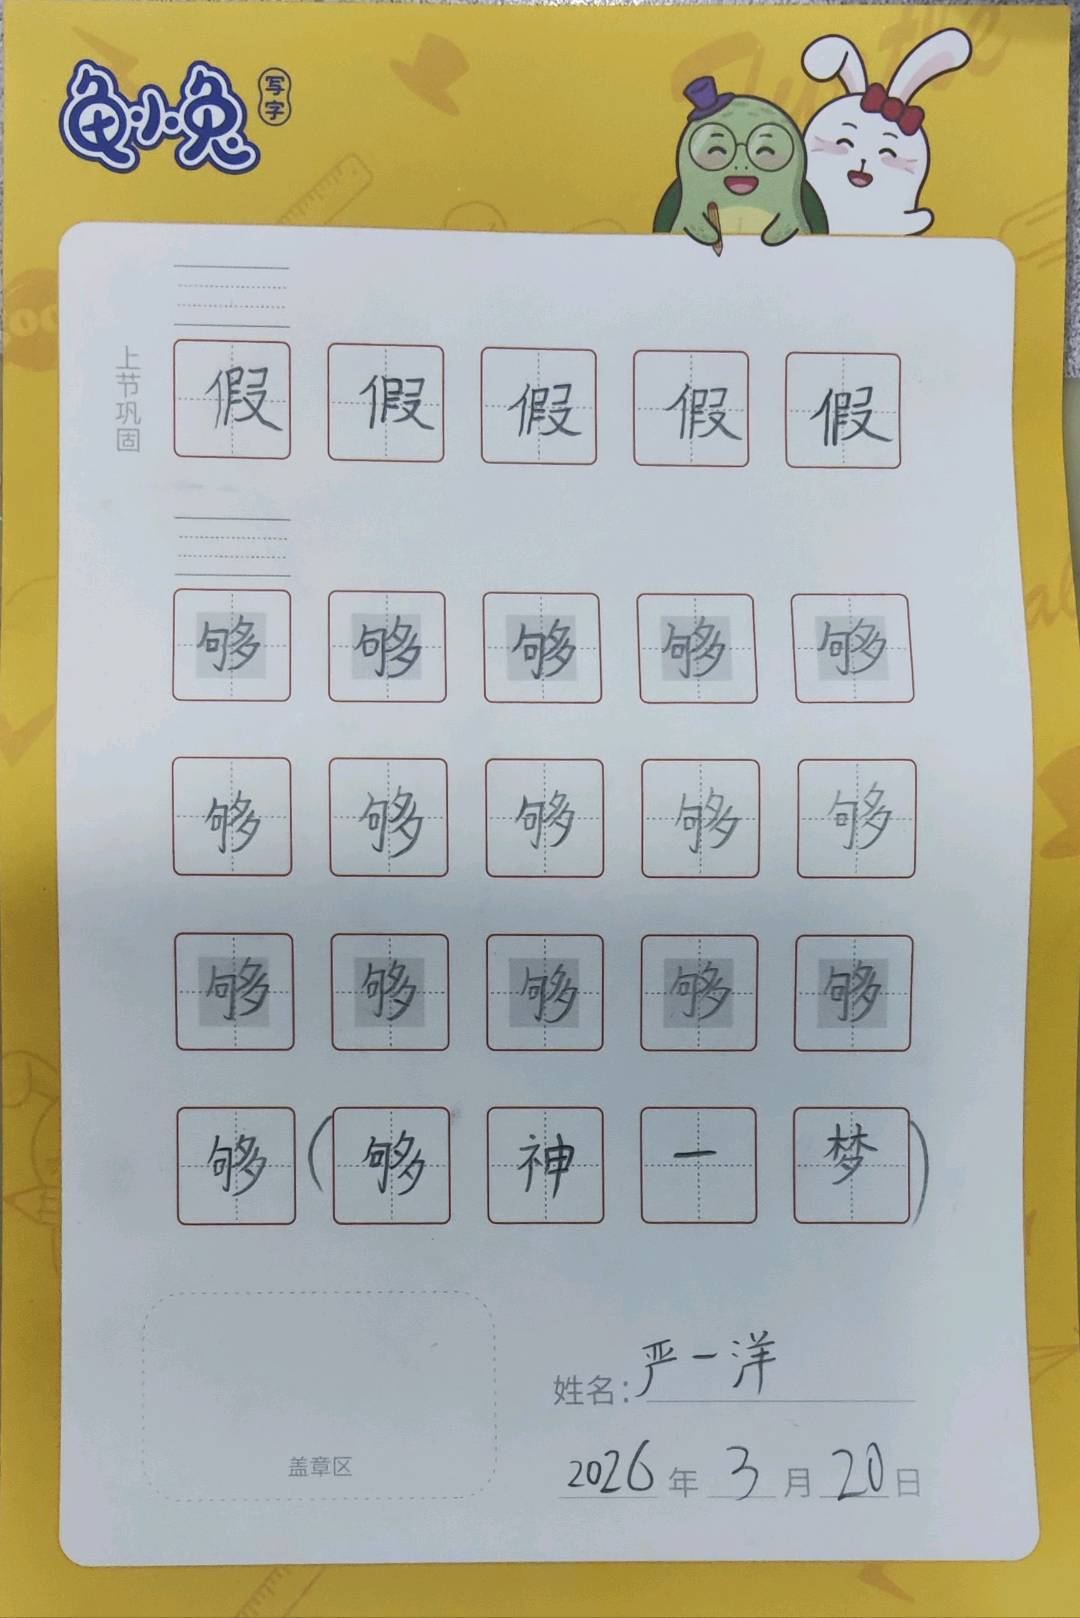 龟小兔 写字
上节巩固
假 假 假 假 假
够 够 够 够 够
够 够 够 够 够
够 够 够 够 够
够 ( 够 神 一 梦 )
姓名: 严一洋
盖章区
2026 年 3 月 20 日